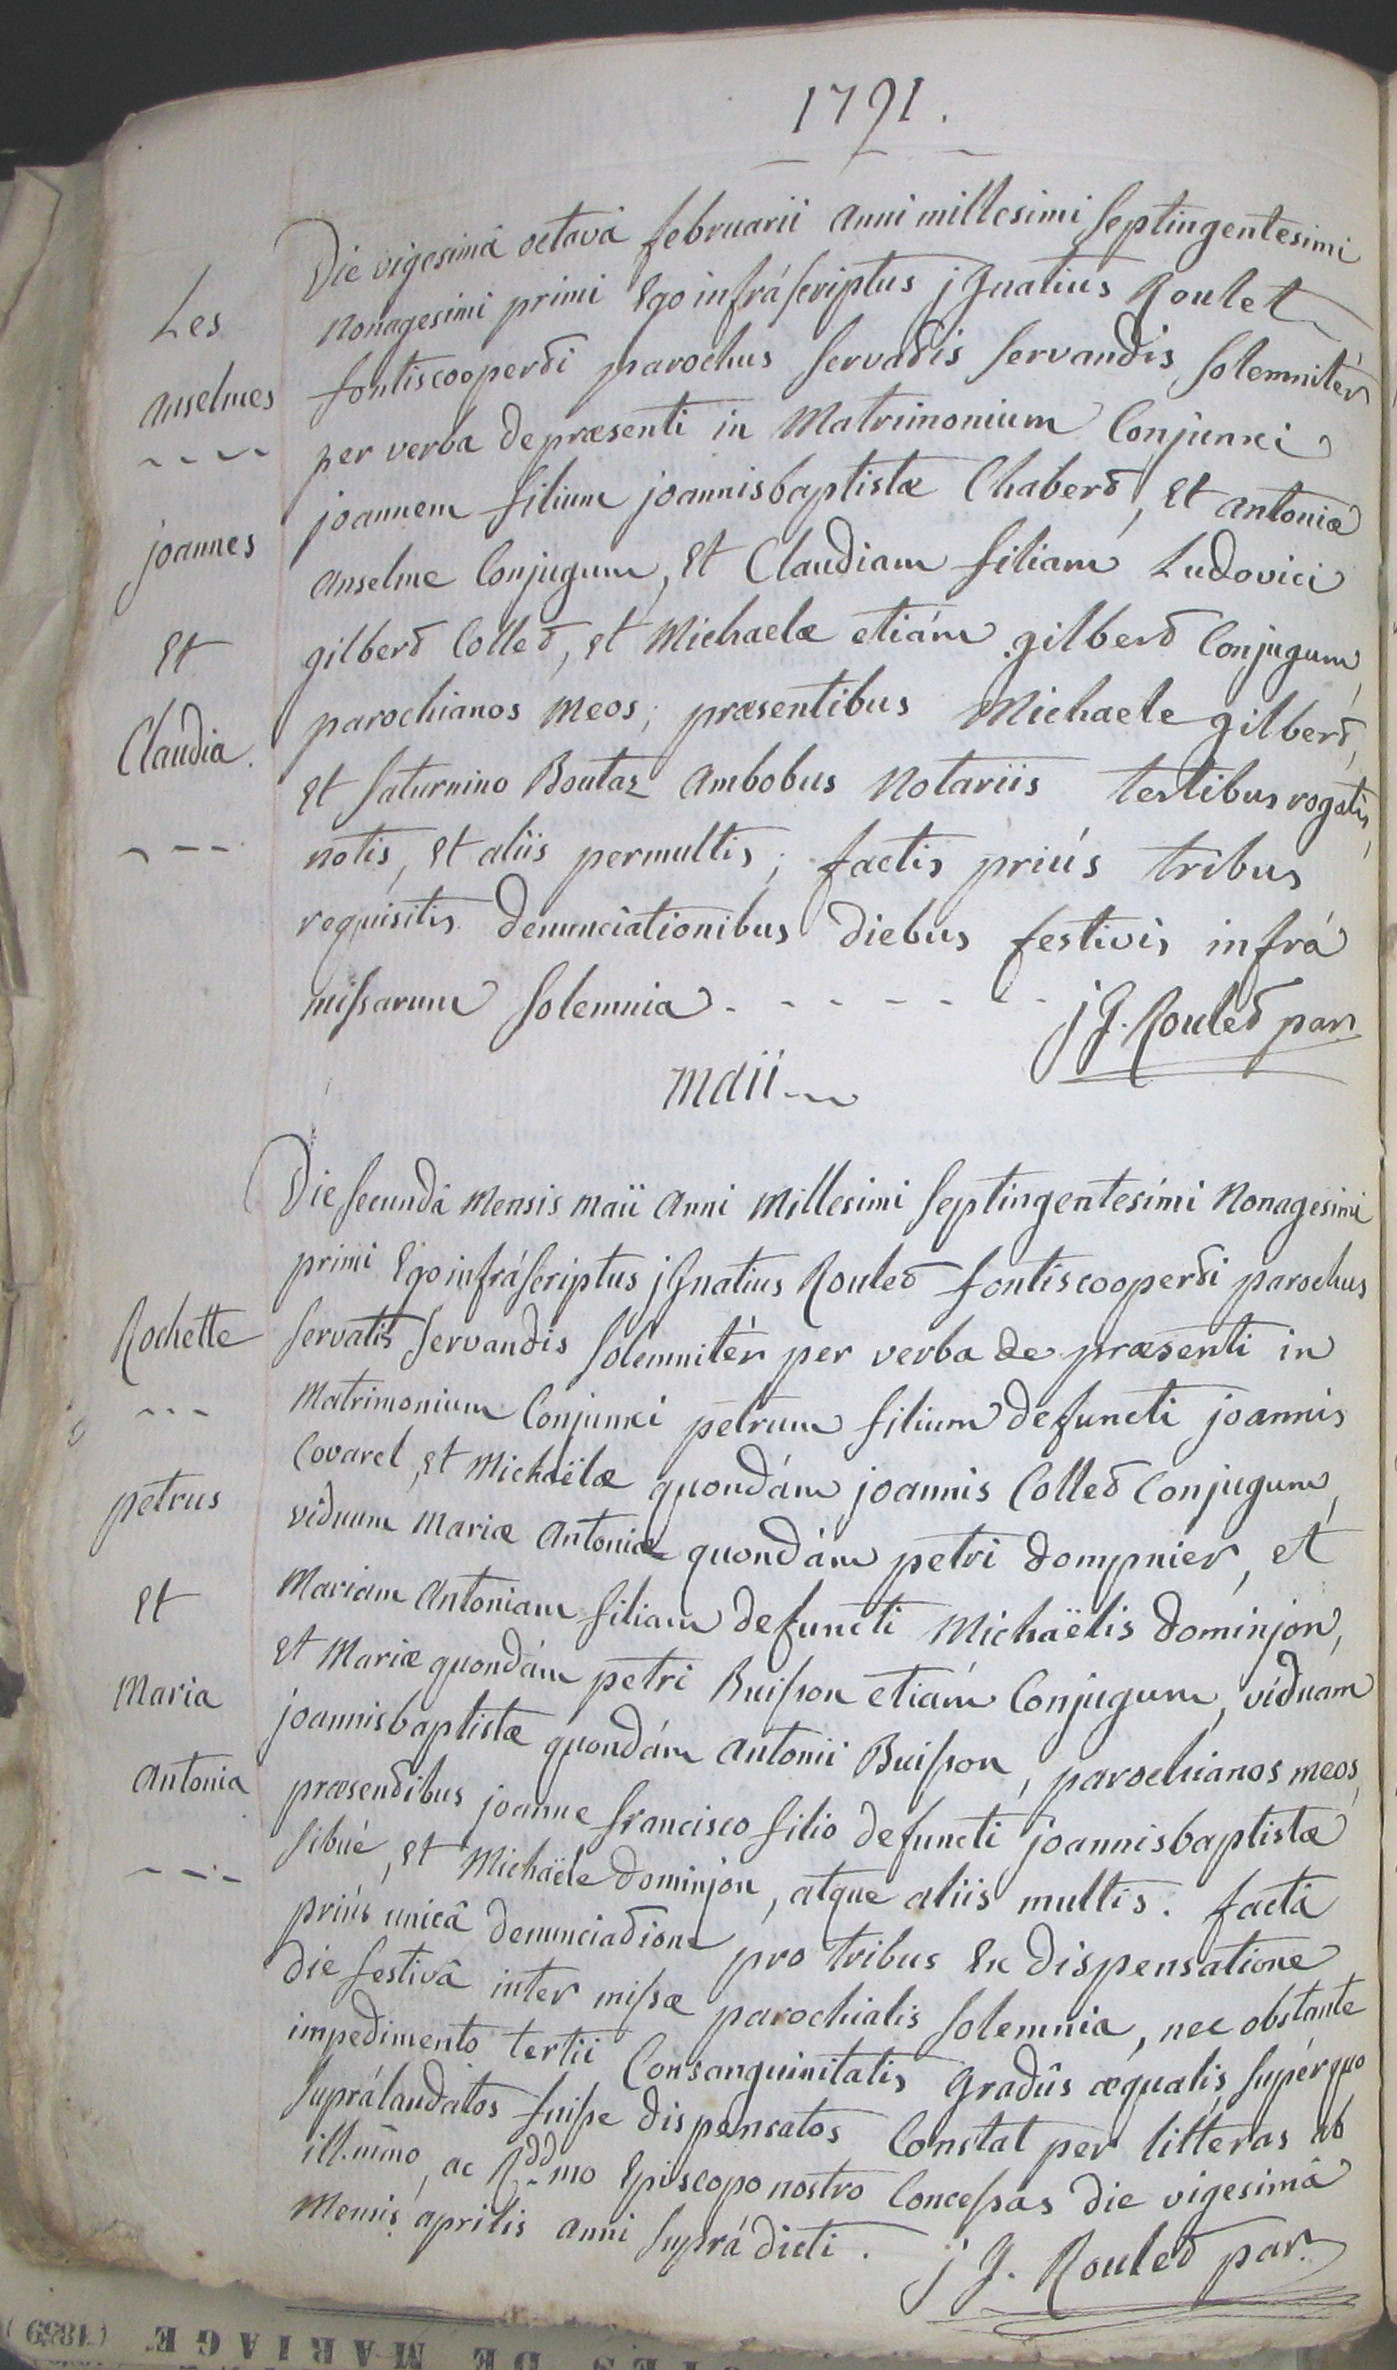 1791.
Les
anselmes
joannes
Et
Claudia.
Die vigesimâ octavâ februarii anni millesimi septingentesimi
nonagesimi primi Ego infráscriptus jGnatius Roulet
fontiscooperti parochus servatis servandis solemnitér
per verba de præsenti in Matrimonium Conjunxi
joannem filium joannisbaptistæ Chabert, Et antoniæ
anselme Conjugum, Et Claudiam filiam Ludovici
gilbert Collet, et Michaelæ etiám gilbert Conjugum,
parochianos meos; præsentibus Michaele gilbert,
Et saturnino Boutaz ambobus Notariis testibus rogatis,
notis, Et aliis permultis; factis priús tribus
requisitis denunciationibus diebus festivis infrá
missarum solemnia - - - - - - -
jG. Roulet par.
maii
Rochette
petrus
Et
Maria
antonia
Die secundâ Mensis maii anni Millesimi septingentesimi Nonagesimi
primi Ego infráscriptus jGnatius Roulet fontiscooperti parochus
servatis servandis solemnitér per verba de præsenti in
Matrimonium Conjunxi petrum filium defuncti joannis
Covarel, Et Michaëlæ quondám joannis Collet Conjugum,
viduum Mariæ Antoniæ quondám petri dompnier, et
Mariam Antoniam filiam defuncti Michaëlis dominjon,
et Mariæ quondám petri Buisson etiám Conjugum, viduam
joannisbaptistæ quondám antonii Buisson, parochianos meos,
præsentibus joanne francisco filio defuncti joannisbaptistæ
sibué, Et Michaële dominjon, atque aliis multis. factâ
priús unicâ denunciatione pro tribus Ex dispensatione
die festivâ inter missæ parochialis solemnia, nec obstante
impedimento tertii Consanguinitatis gradûs æqualis, supér quo
suprálaudatos fuisse dispensatos Constat per litteras ab
ill.mo, ac Rdd.mo Episcopo nostro Concessas die vigesimâ
Mensis aprilis anni suprá dicti.
jG. Roulet par.
MARIAGE (1859)